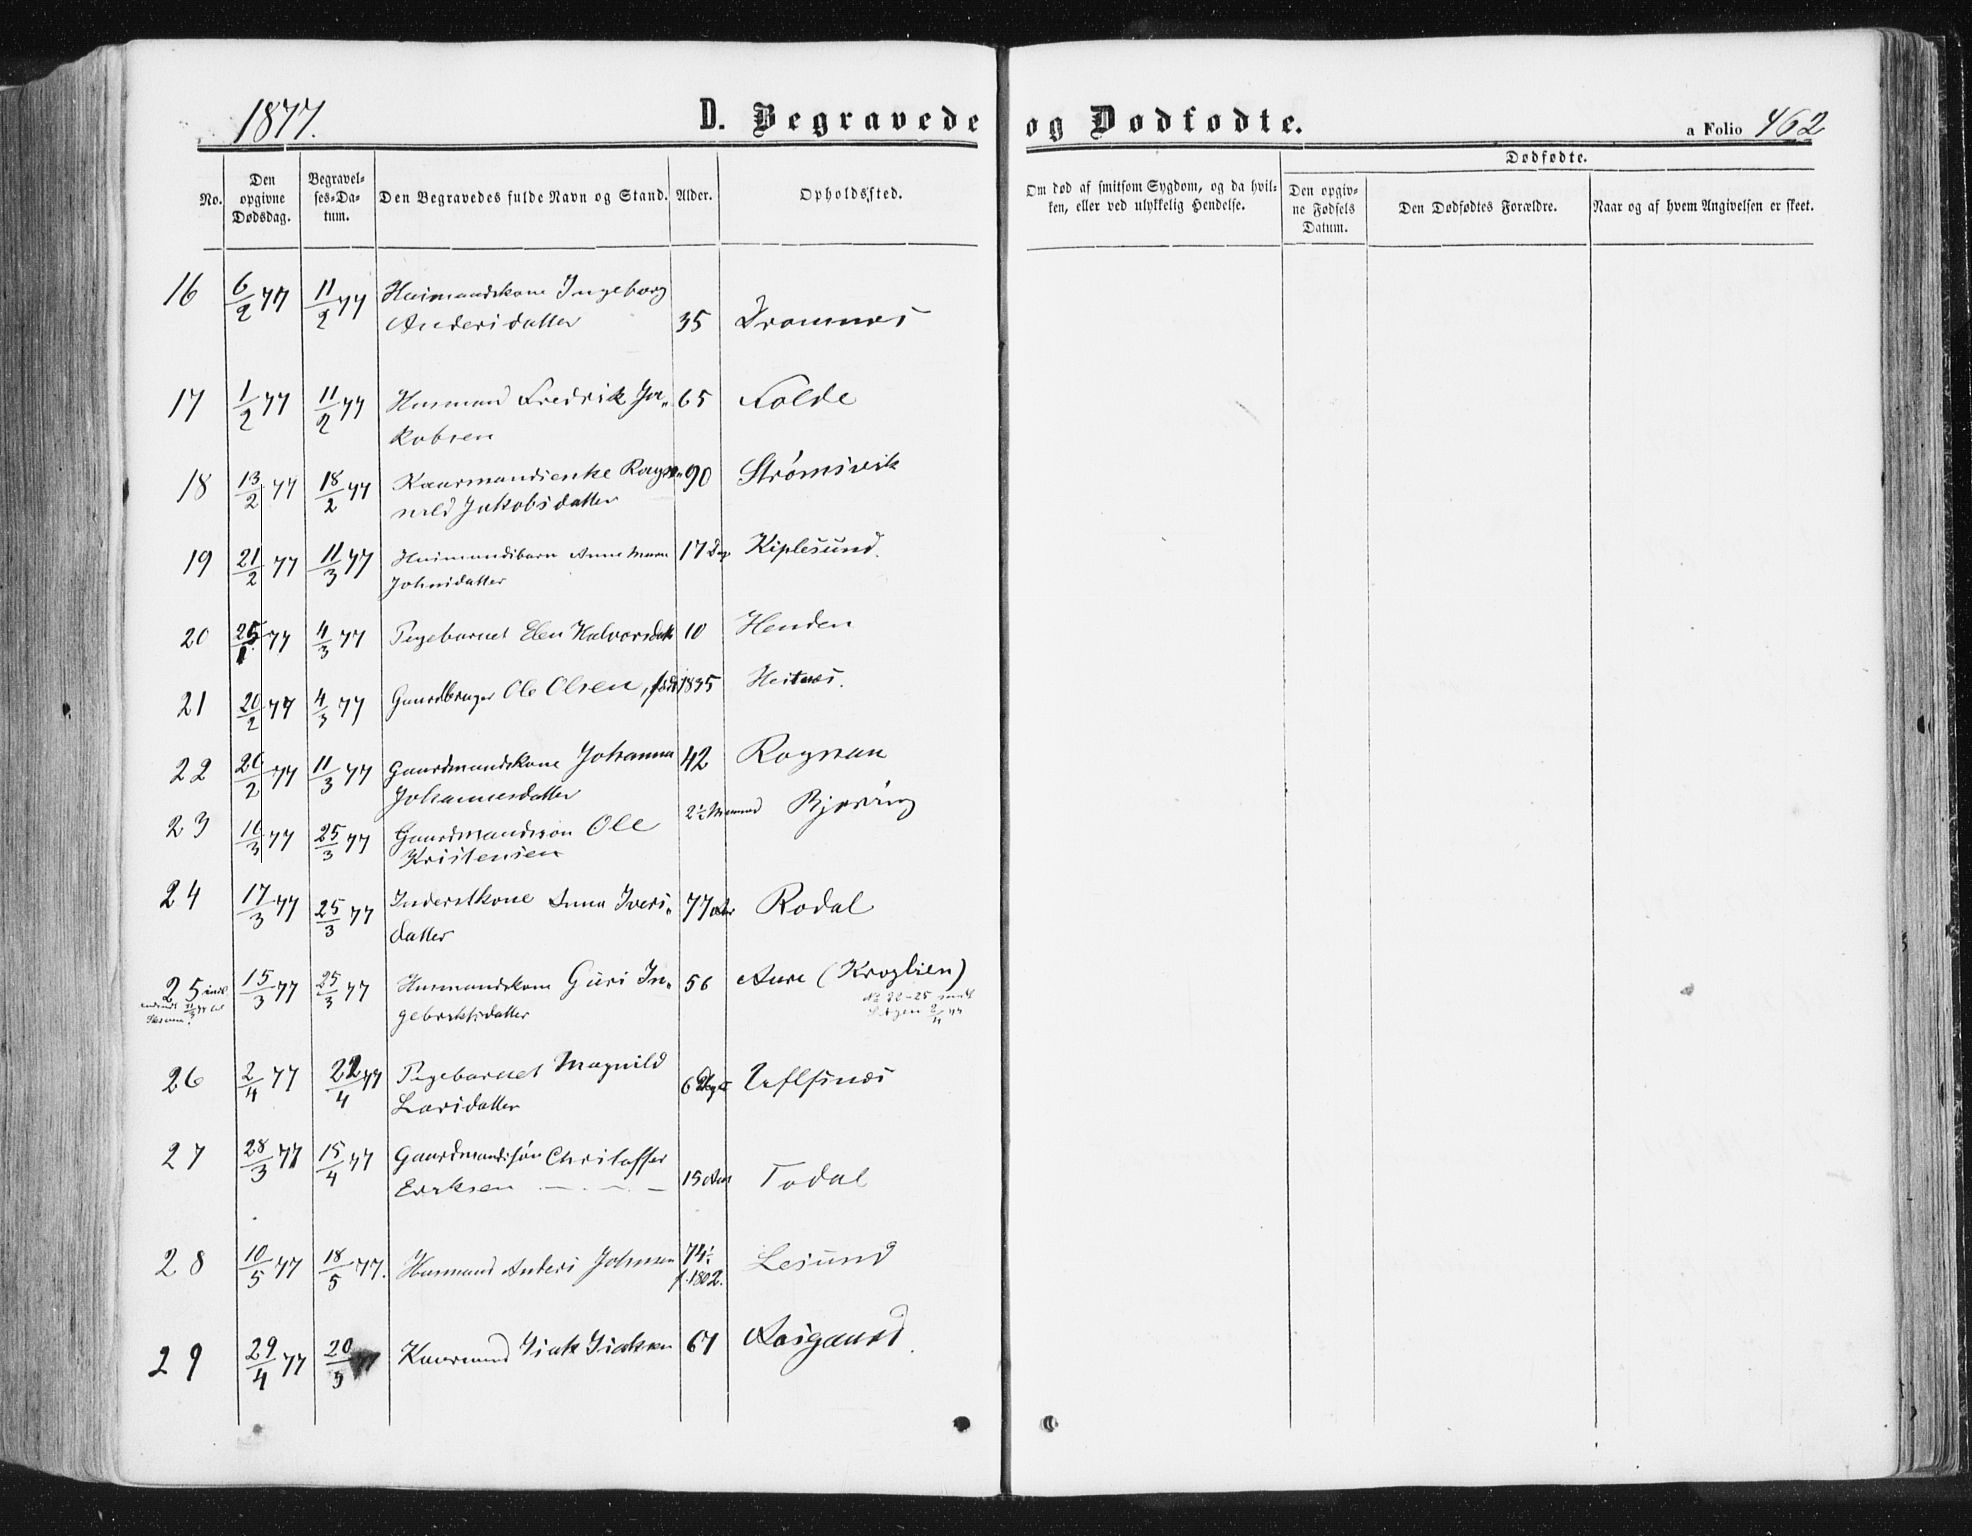 1877.
D. Begravede og Dødfødte.
a Folio 462
No.
Den opgivne Dødsdag.
Begravelses-Datum.
Den Begravedes fulde Navn og Stand.
Alder.
Opholdssted.
Om død af smitsom Sygdom, og da hvilken, eller ved ulykkelig Hendelse.
Dødfødte.
Den opgivne Fødsels Datum.
Den Dødfødtes Forældre.
Naar og af hvem Angivelsen er skeet.
16 6/2 77 11/2 77 Husmandskone Ingeborg
Andersdatter 35 Dromnes
17 1/2 77 11/2 77 Husmand Fredrik Ja- 65 Folde
kobsen
18 13/2 77 18/2 77 Kaarmandsenke Rag- 90 Strømsvik
nild Jakobsdatter
19 21/2 77 11/3 77 Husmandsbarn Anne 17 Dage Kiplesund.
Johnsdatter
20 25/1 77 4/3 77 Pigebarnet Elen Halvorsdatter 10 Henden
21 20/2 77 4/3 77 Gaardbruger Ole Olsen, født 1835
22 26/2 77 11/3 77 Gaardmandskone Johanna 42 Rognan
Johannesdatter
23 10/3 77 25/3 77 Gaardmandssøn Ole 2½ Maaned Bjøring
Kristensen
24 17/3 77 25/3 77 Inderstkone Anna Ivers- 77 Aar Rodal
datter
25 15/3 77 25/3 77 Husmandskone Guri In- 56 Aure (Kroglien)
gebrktsdatter
No 22-25
26 2/4 77 22/4 77 Pigebarnet Magnild 6 Dage
Larsdatter
27 28/3 77 15/4 77 Gaardmandssøn Christoffer
Eriksen 15 Aar Todal
28 10/5 77 18/5 77. Husmand Anders Johnsen 74½ Lesund
f. 1802.
29 29/4 77 20/5 77 Kaarmand Isak Isaksen 67 Aasgaard.